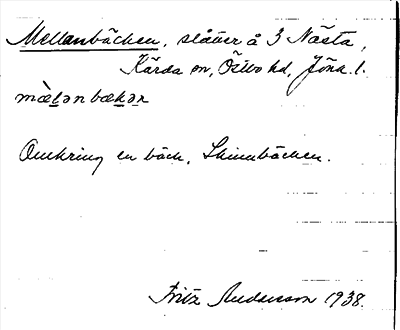 Mellanbäcken, slåtter å 3 Nästa,
Kärda sn, Östbo hd, Jönk. l.
mæ̀lən bækən
Omkring en bäck, Skinnbäcken.
Fritz Andersson 1938.